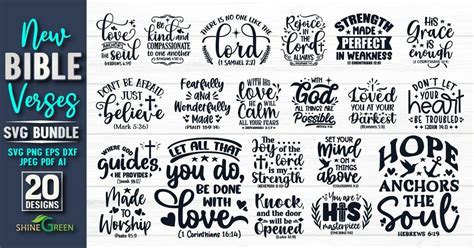 New
BIBLE
Verses
SVG BUNDLE
SVG PNG EPS DXF
JPEG PDF AI
20
DESIGNS
SHINEGREEN
love
ANCHORS
the
Soul
HEBREWS 6:19
Be
kind and
compassionate
to one
another
THERE IS NO ONE LIKE THE
Lord
(1 SAMUEL 2:2)
Rejoice
in the
Lord
always
STRENGTH
MADE
PERFECT
IN WEAKNESS
His
Grace
is
enough
DON'T BE AFRAID,
JUST
believe
(Mark 5:36)
Fearfully
and
Wonderfully
Made
WITH HIS
LOVE,
HE WILL
CALM
ALL YOUR
FEARS
with
God
ALL THINGS
ARE
Possible
Loved
YOU AT YOUR
Darkest
DON'T LET
your
heart
BE
TROUBLED
(JOHN 14:1)
WHERE
God
guides,
HE PROVIDES
Made
to
Worship
LET ALL THAT
you do,
BE DONE
WITH
love
(1 Corinthians 16:14)
The
Joy of the
Lord
is my
Strength
Knock,
and the
door will be
Opened
Set your
Mind on
things
above
You are
HIS
masterpiece
HOPE
ANCHORS
THE SOUL
HEBREWS 6:19